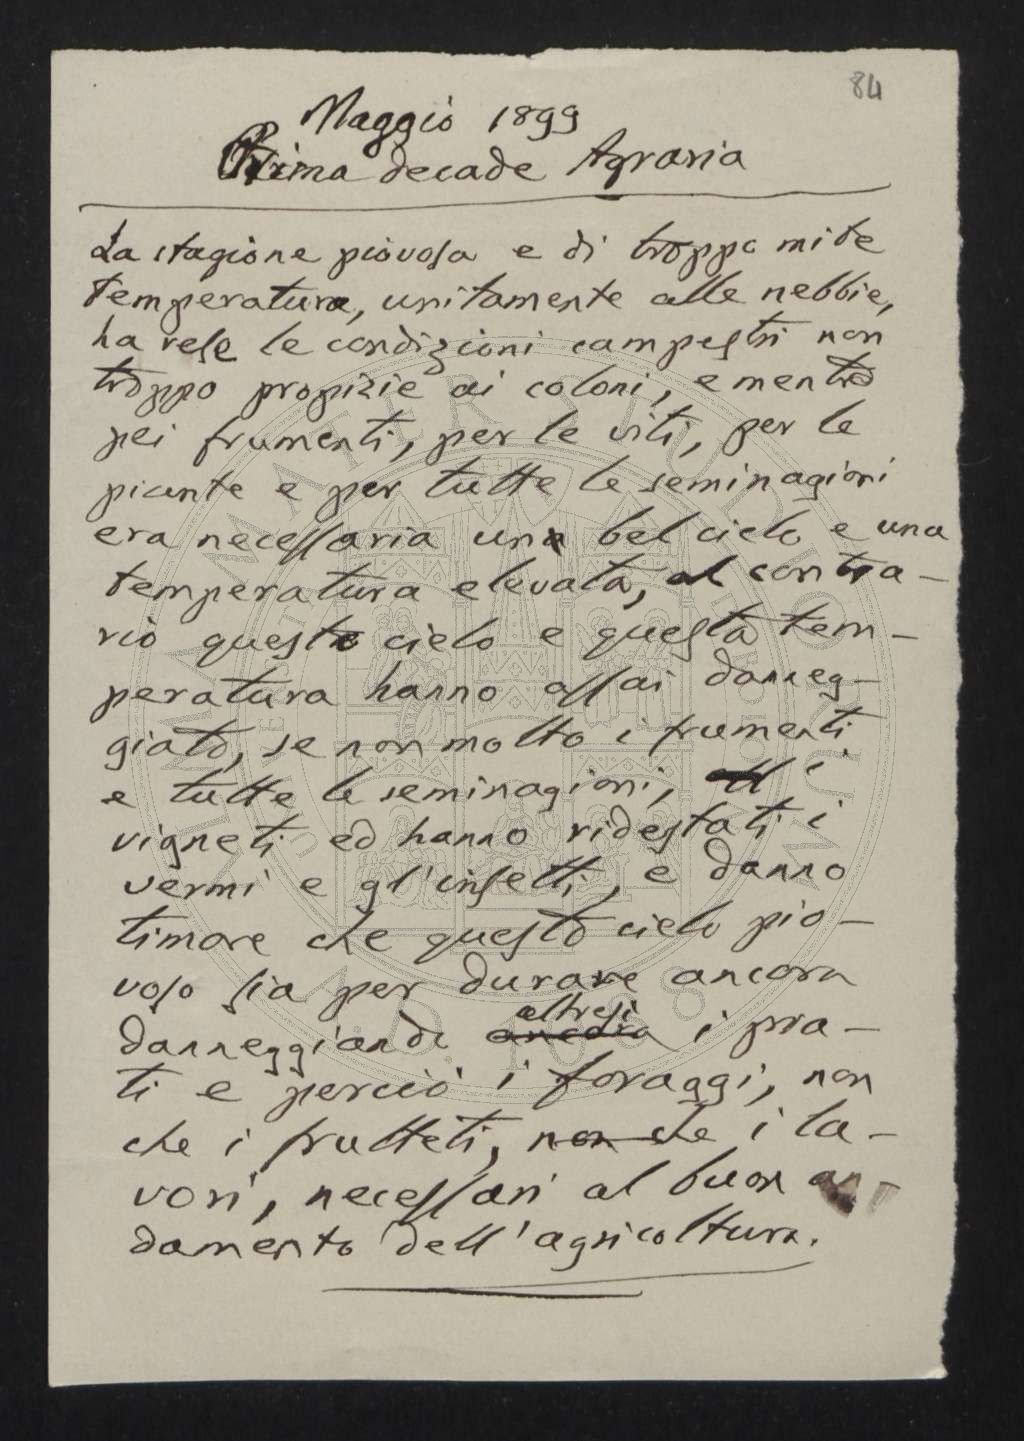 84
Maggio 1899
Prima decade Agraria
La stagione piovosa e di troppo mite
temperatura, unitamente alle nebbie,
ha rese le condizioni campestri non
troppo propizie ai coloni, e mentre
pei frumenti, per le viti, per le
piante e per tutte le seminagioni
era necessaria un bel cielo e una
temperatura elevata, al contra-
rio questo cielo e questa tem-
peratura hanno assai danneg-
giato, se non molto i frumenti
e tutte le seminagioni, i
vigneti ed hanno ridestati i
vermi e gl'insetti, e danno
timore che questo cielo pio-
voso sia per durare ancora
altresì
danneggiando ancora i pra-
ti e perciò i foraggi, non
che i frutteti, non che i la-
vori, necessari al buon an-
damento dell'agricoltura.